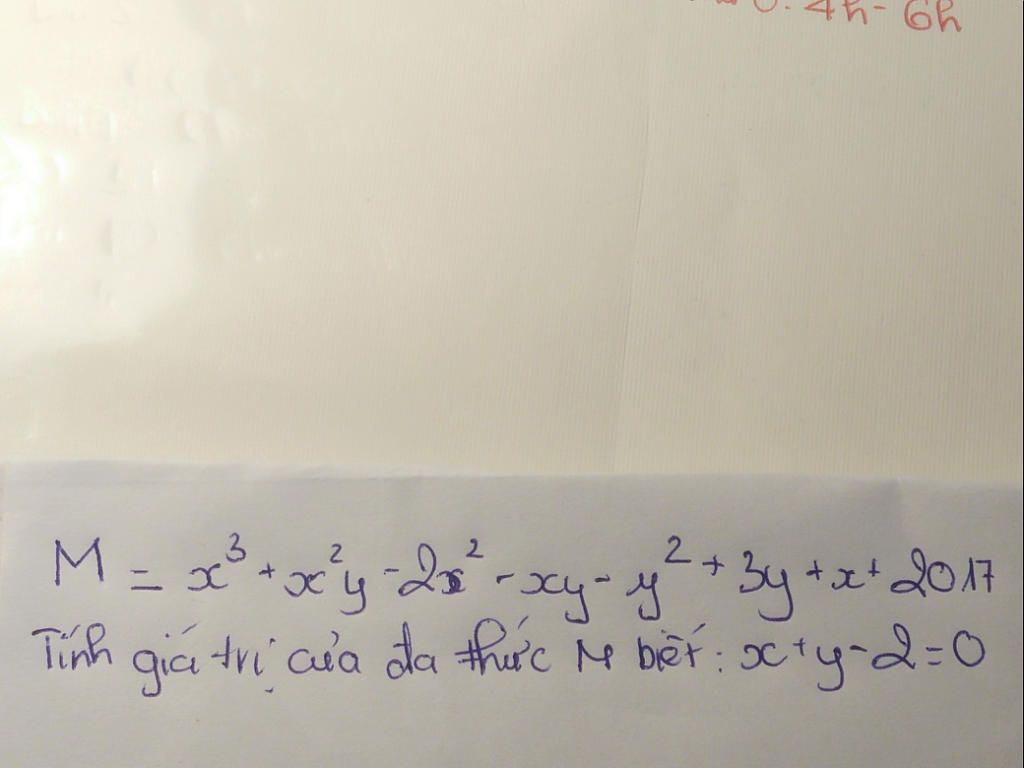 4h - 6h
M = x³ + x²y - 2x² - xy - y² + 3y + x + 2017
Tính giá trị của đa thức M biết: x + y - 2 = 0